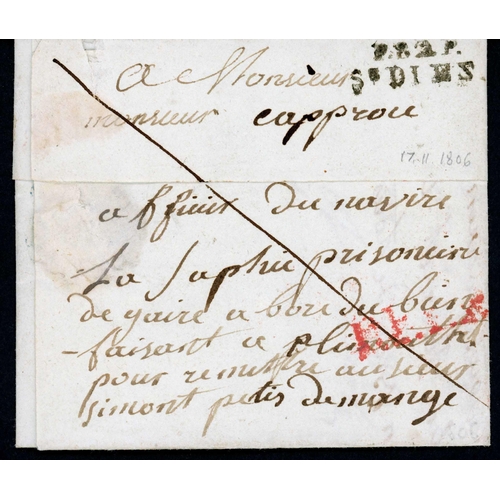 P.P.2.P.
St DIMS
A Monsieur
monsieur capprou
17.11.1806
a fficiit du navire
La Saphie prisonieire
de gaire a bore du bien
faisant a plimouthe
pour remettre au sieur
simont petis demange